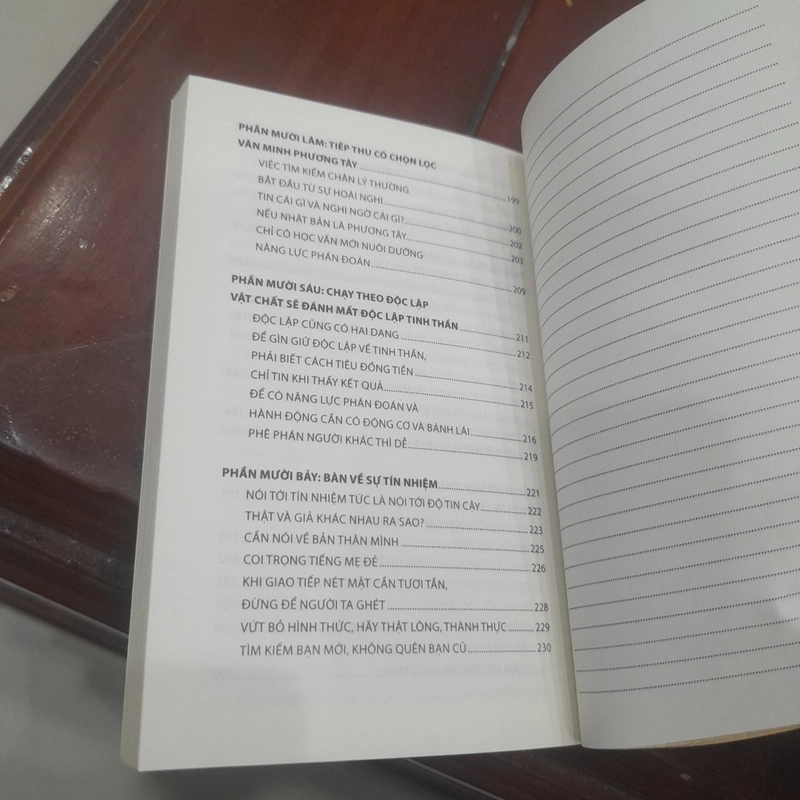 PHẦN MƯỜI LĂM: TIẾP THU CÓ CHỌN LỌC
VĂN MINH PHƯƠNG TÂY 199
VIỆC TÌM KIẾM CHÂN LÝ THƯỜNG
BẮT ĐẦU TỪ SỰ HOÀI NGHI 200
TIN CÁI GÌ VÀ NGHI NGỜ CÁI GÌ? 202
NẾU NHẬT BẢN LÀ PHƯƠNG TÂY 203
CHỈ CÓ HỌC VẤN MỚI NUÔI DƯỠNG
NĂNG LỰC PHÁN ĐOÁN 209
PHẦN MƯỜI SÁU: CHẠY THEO ĐỘC LẬP
VẬT CHẤT SẼ ĐÁNH MẤT ĐỘC LẬP TINH THẦN 211
ĐỘC LẬP CŨNG CÓ HAI DẠNG 212
ĐỂ GÌN GIỮ ĐỘC LẬP VỀ TINH THẦN,
PHẢI BIẾT CÁCH TIÊU ĐỒNG TIỀN 214
CHỈ TIN KHI THẤY KẾT QUẢ 215
ĐỂ CÓ NĂNG LỰC PHÁN ĐOÁN VÀ
HÀNH ĐỘNG CẦN CÓ ĐỘNG CƠ VÀ BÁNH LÁI 216
PHÊ PHÁN NGƯỜI KHÁC THÌ DỄ 219
PHẦN MƯỜI BẢY: BÀN VỀ SỰ TÍN NHIỆM 221
NÓI TỚI TÍN NHIỆM TỨC LÀ NÓI TỚI ĐỘ TIN CẬY 222
THẬT VÀ GIẢ KHÁC NHAU RA SAO? 223
CẦN NÓI VỀ BẢN THÂN MÌNH 225
COI TRỌNG TIẾNG MẸ ĐẺ 226
KHI GIAO TIẾP NÉT MẶT CẦN TƯƠI TẮN,
ĐỪNG ĐỂ NGƯỜI TA GHÉT 228
VỨT BỎ HÌNH THỨC, HÃY THẬT LÒNG, THÀNH THỰC 229
TÌM KIẾM BẠN MỚI, KHÔNG QUÊN BẠN CŨ 230